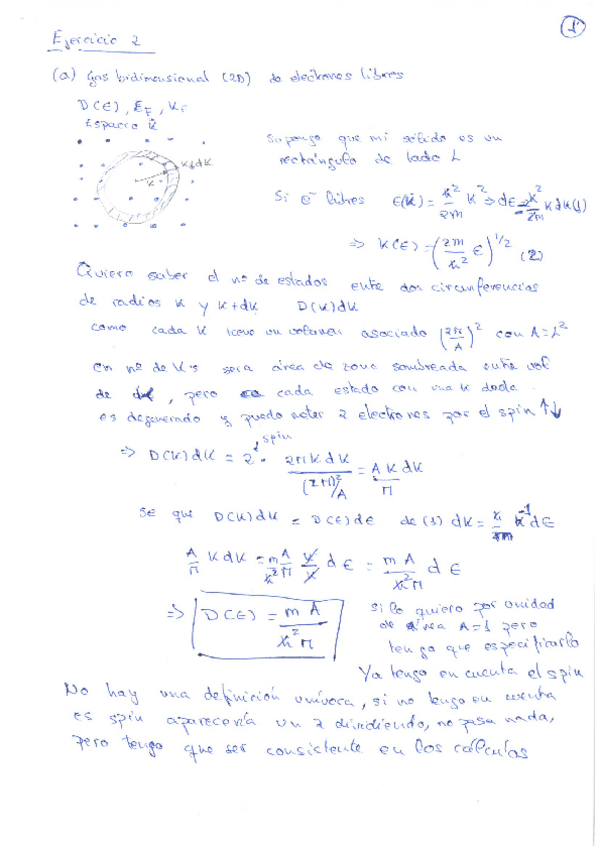 1
Ejercicio 2
(a) Gas bidimensional (2D) de electrones libres
D(ϵ), E_F, K_F
Espacio k⃗
K+dK
K
Supongo que mi sólido es un
rectángulo de lado L
Si e⁻ libres ϵ(k⃗) = ħ²/2m K² ⇒ dϵ = 2ħ²/2m K dK (1)
⇒ K(ϵ) = (2m/ħ² ϵ)^1/2 (2)
Quiero saber el nº de estados entre dos circunferencias
de radios K y K+dK D(K)dK
como cada K tiene un volumen asociado (2π/A)² con A=L²
en nº de K's será área de zona sombreada entre vol
de , pero cada estado con una K dada
es degenerado y puedo meter 2 electrones por el spin ↑↓
⇒ D(K)dK = 2 · 2πK dK / (2π)²/A = A K dK / π
spin
Se que D(K)dK = D(ϵ)dϵ de (1) dK = K⁻¹ dϵ
A/π K dK = mA/ħ²π K/K dϵ = mA/ħ²π dϵ
⇒ D(ϵ) = mA/ħ²π
si lo quiero por unidad
de área A=1 pero
tengo que especificarlo
Ya tengo en cuenta el spin
No hay una definición unívoca, si no tengo en cuenta
es spin aparecería un 2 dividiendo, no pasa nada,
pero tengo que ser consistente en los cálculos